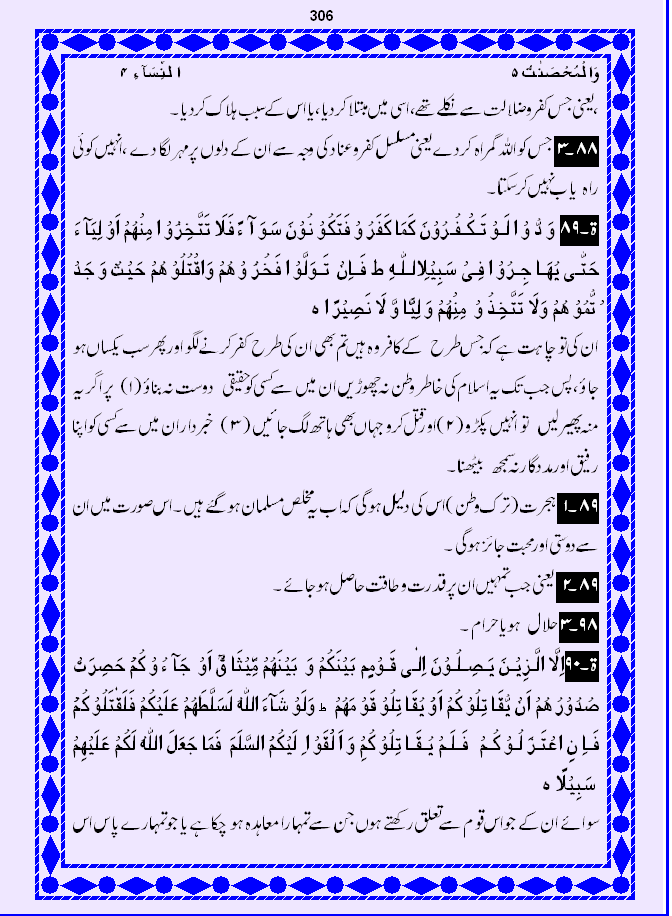 306
وَالْمُحْصَنٰتُ ۵ النِّسَآءِ ۴
،یعنی جس کفر و ضلالت سے نکلے تھے، اسی میں مبتلا کر دیا، یا اس کے سبب ہلاک کر دیا۔
۸۸۔۳ جس کو اللہ گمراہ کر دے یعنی مسلسل کفر و عناد کی وجہ سے ان کے دلوں پر مہر لگا دے، انہیں کوئی
راہ یاب نہیں کر سکتا۔
ۃ۔۸۹ وَدُّوْا لَوْ تَكْفُرُوْنَ كَمَا كَفَرُوْ فَتَكُوْنُوْنَ سَوَآءً فَلَا تَتَّخِرُوْا مِنْهُمْ اَوْلِيَآءَ
حَتّٰى يُهَاجِرُوْا فِىْ سَبِيْلِاللّٰهِ ط فَاِنْ تَوَلَّوْا فَخُرُوْهُمْ وَاقْتُلُوْهُمْ حَيْثُ وَجَدْ
تُّمُوْهُمْ وَلَا تَتَّخِذُوْ مِنْهُمْ وَلِيًّا وَّ لَا نَصِيْرًا ہ
ان کی تو چاہت ہے کہ جس طرح کے کافر وہ ہیں تم بھی ان کی طرح کفر کرنے لگو اور پھر سب یکساں ہو
جاؤ، پس جب تک یہ اسلام کی خاطر وطن نہ چھوڑیں ان میں سے کسی کو حقیقی دوست نہ بناؤ (۱) پر اگر یہ
منہ پھیر لیں تو انہیں پکڑو (۲) اور قتل کرو جہاں بھی ہاتھ لگ جائیں (۳) خبردار ان میں سے کسی کو اپنا
رفیق اور مددگار نہ سمجھ بیٹھنا۔
۸۹۔۱ ہجرت (ترک وطن) اس کی دلیل ہوگی کہ اب یہ مخلص مسلمان ہو گئے ہیں۔ اس صورت میں ان
سے دوستی اور محبت جائز ہوگی۔
۸۹۔۲ یعنی جب تمہیں ان پر قدرت و طاقت حاصل ہو جائے۔
۹۸۔۳ حلال ہو یا حرام۔
ۃ۔۹۰ اِلَّا الَّزِيْنَ يَصِلُوْنَ اِلٰى قَوْمٍم بَيْنَكُمْ وَ بَيْنَهُمْ مِّيْثَاقٌ اَوْ جَآءُوْكُمْ حَصِرَتْ
صُدُوْرُهُمْ اَنْ يُّقَاتِلُوْكُمْ اَوْ يُقَاتِلُوْ قَوْمَهُمْ ط وَلَوْ شَآءَ اللّٰهُ لَسَلَّطَهُمْ عَلَيْكُمْ فَلَقٰتَلُوْكُمْ
فَاِنِ اعْتَرَلُوْكُمْ فَلَمْ يُقَاتِلُوْكُمْ وَاَلْقَوْا اِلَيْكُمُ السَّلَمَ فَمَا جَعَلَ اللّٰهُ لَكُمْ عَلَيْهِمْ
سَبِيْلًا ہ
سوائے ان کے جو اس قوم سے تعلق رکھتے ہوں جن سے تمہارا معاہدہ ہو چکا ہے یا جو تمہارے پاس اس